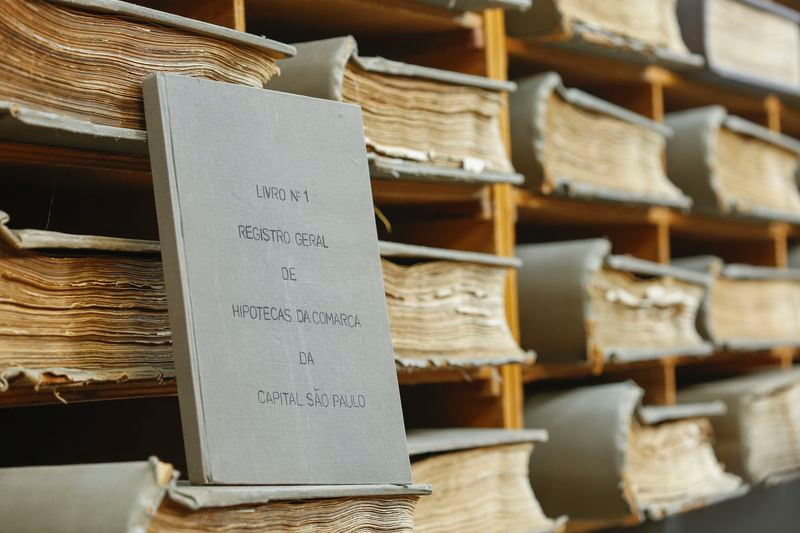 LIVRO Nº 1
REGISTRO GERAL
DE
HIPOTECAS. DA COMARCA
DA
CAPITAL. SÃO PAULO